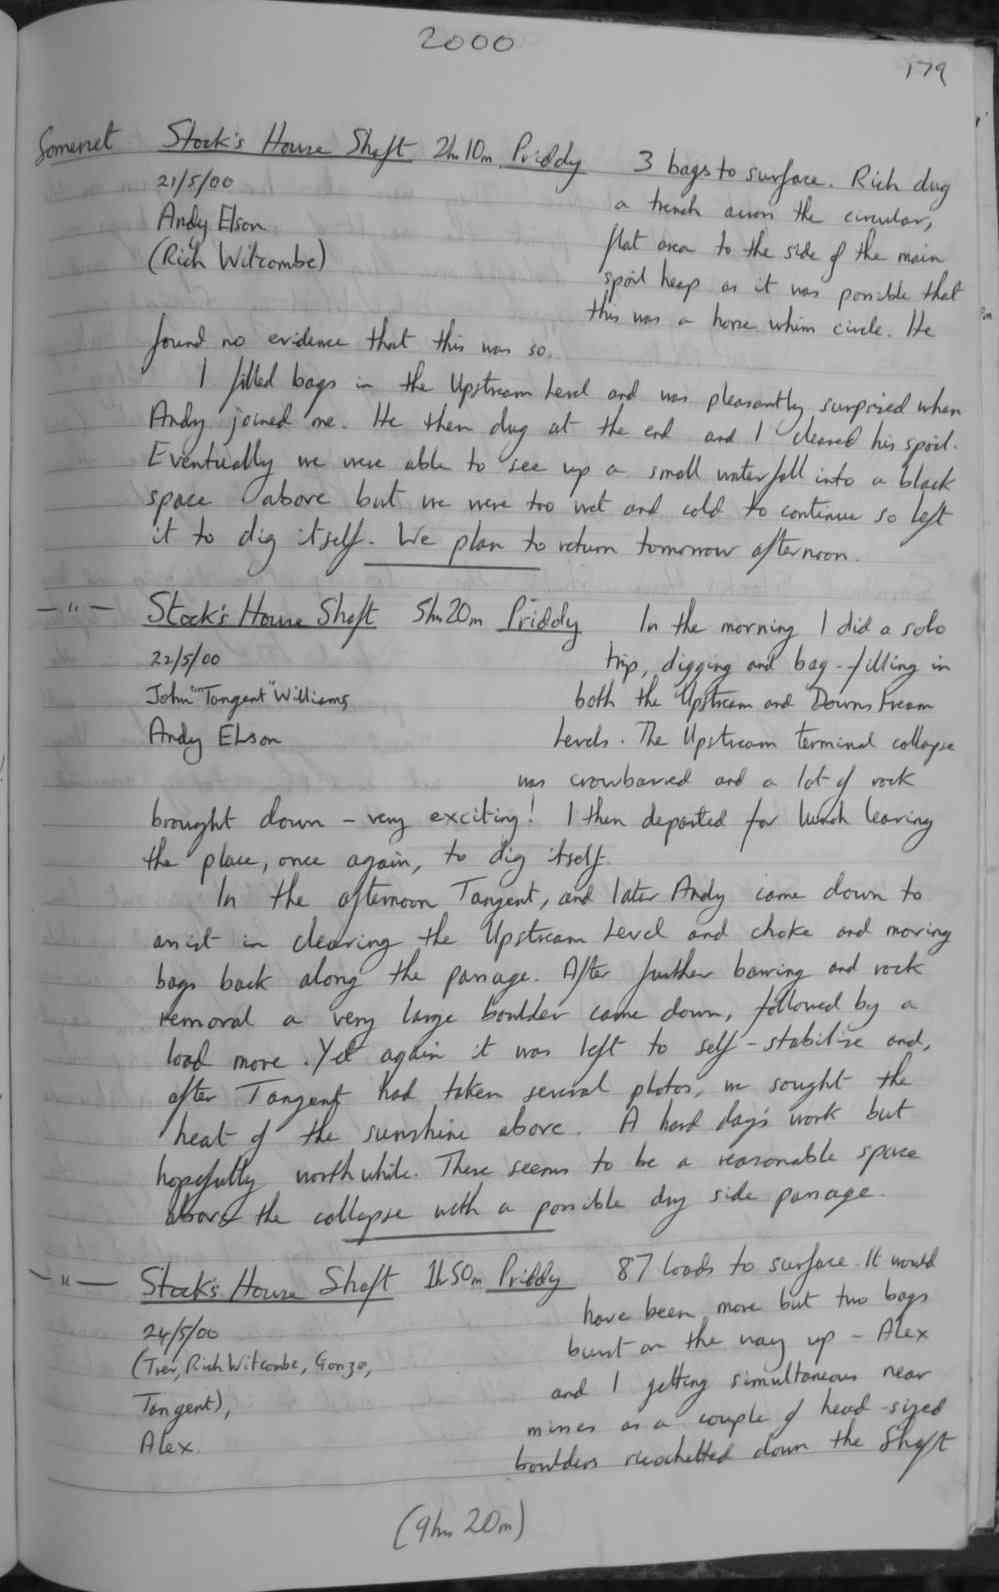 2000
179
Somerset Stock's House Shaft 2h 10m Priddy 3 bags to surface. Rich dug
21/5/00 a trench across the circular,
Andy Elson flat area to the side of the main
(Rich Witcombe) spoil heap as it was possible that
this was a horse whim circle. He
found no evidence that this was so.
I filled bags in the Upstream Level and was pleasantly surprised when
Andy joined me. He then dug at the end and I cleared his spoil.
Eventually we were able to see up a small waterfall into a black
space above but we were too wet and cold to continue so left
it to dig itself. We plan to return tomorrow afternoon.
—"— Stock's House Shaft 5h 20m Priddy In the morning I did a solo
22/5/00 trip, digging and bag-filling in
John "Tangent" Williams, both the Upstream and Downstream
Andy Elson Levels. The Upstream terminal collapse
was crowbarred and a lot of rock
brought down - very exciting! I then departed for lunch leaving
the place, once again, to dig itself.
In the afternoon Tangent, and later Andy came down to
assist in clearing the Upstream Level and choke and moving
bags back along the passage. After further barring and rock
removal a very large boulder came down, followed by a
load more. Yet again it was left to self-stabilize and,
after Tangent had taken several photos, we sought the
heat of the sunshine above. A hard day's work but
hopefully worthwhile. There seems to be a reasonable space
above the collapse with a possible dry side passage.
—"— Stock's House Shaft 1h 50m Priddy 87 loads to surface. It would
24/5/00 have been more but two bags
(Trev, Rich Witcombe, Gonzo, burst on the way up - Alex
Tangent), and I getting simultaneous near
Alex. misses as a couple of head-sized
boulders ricochetted down the Shaft
(9hrs 20m)